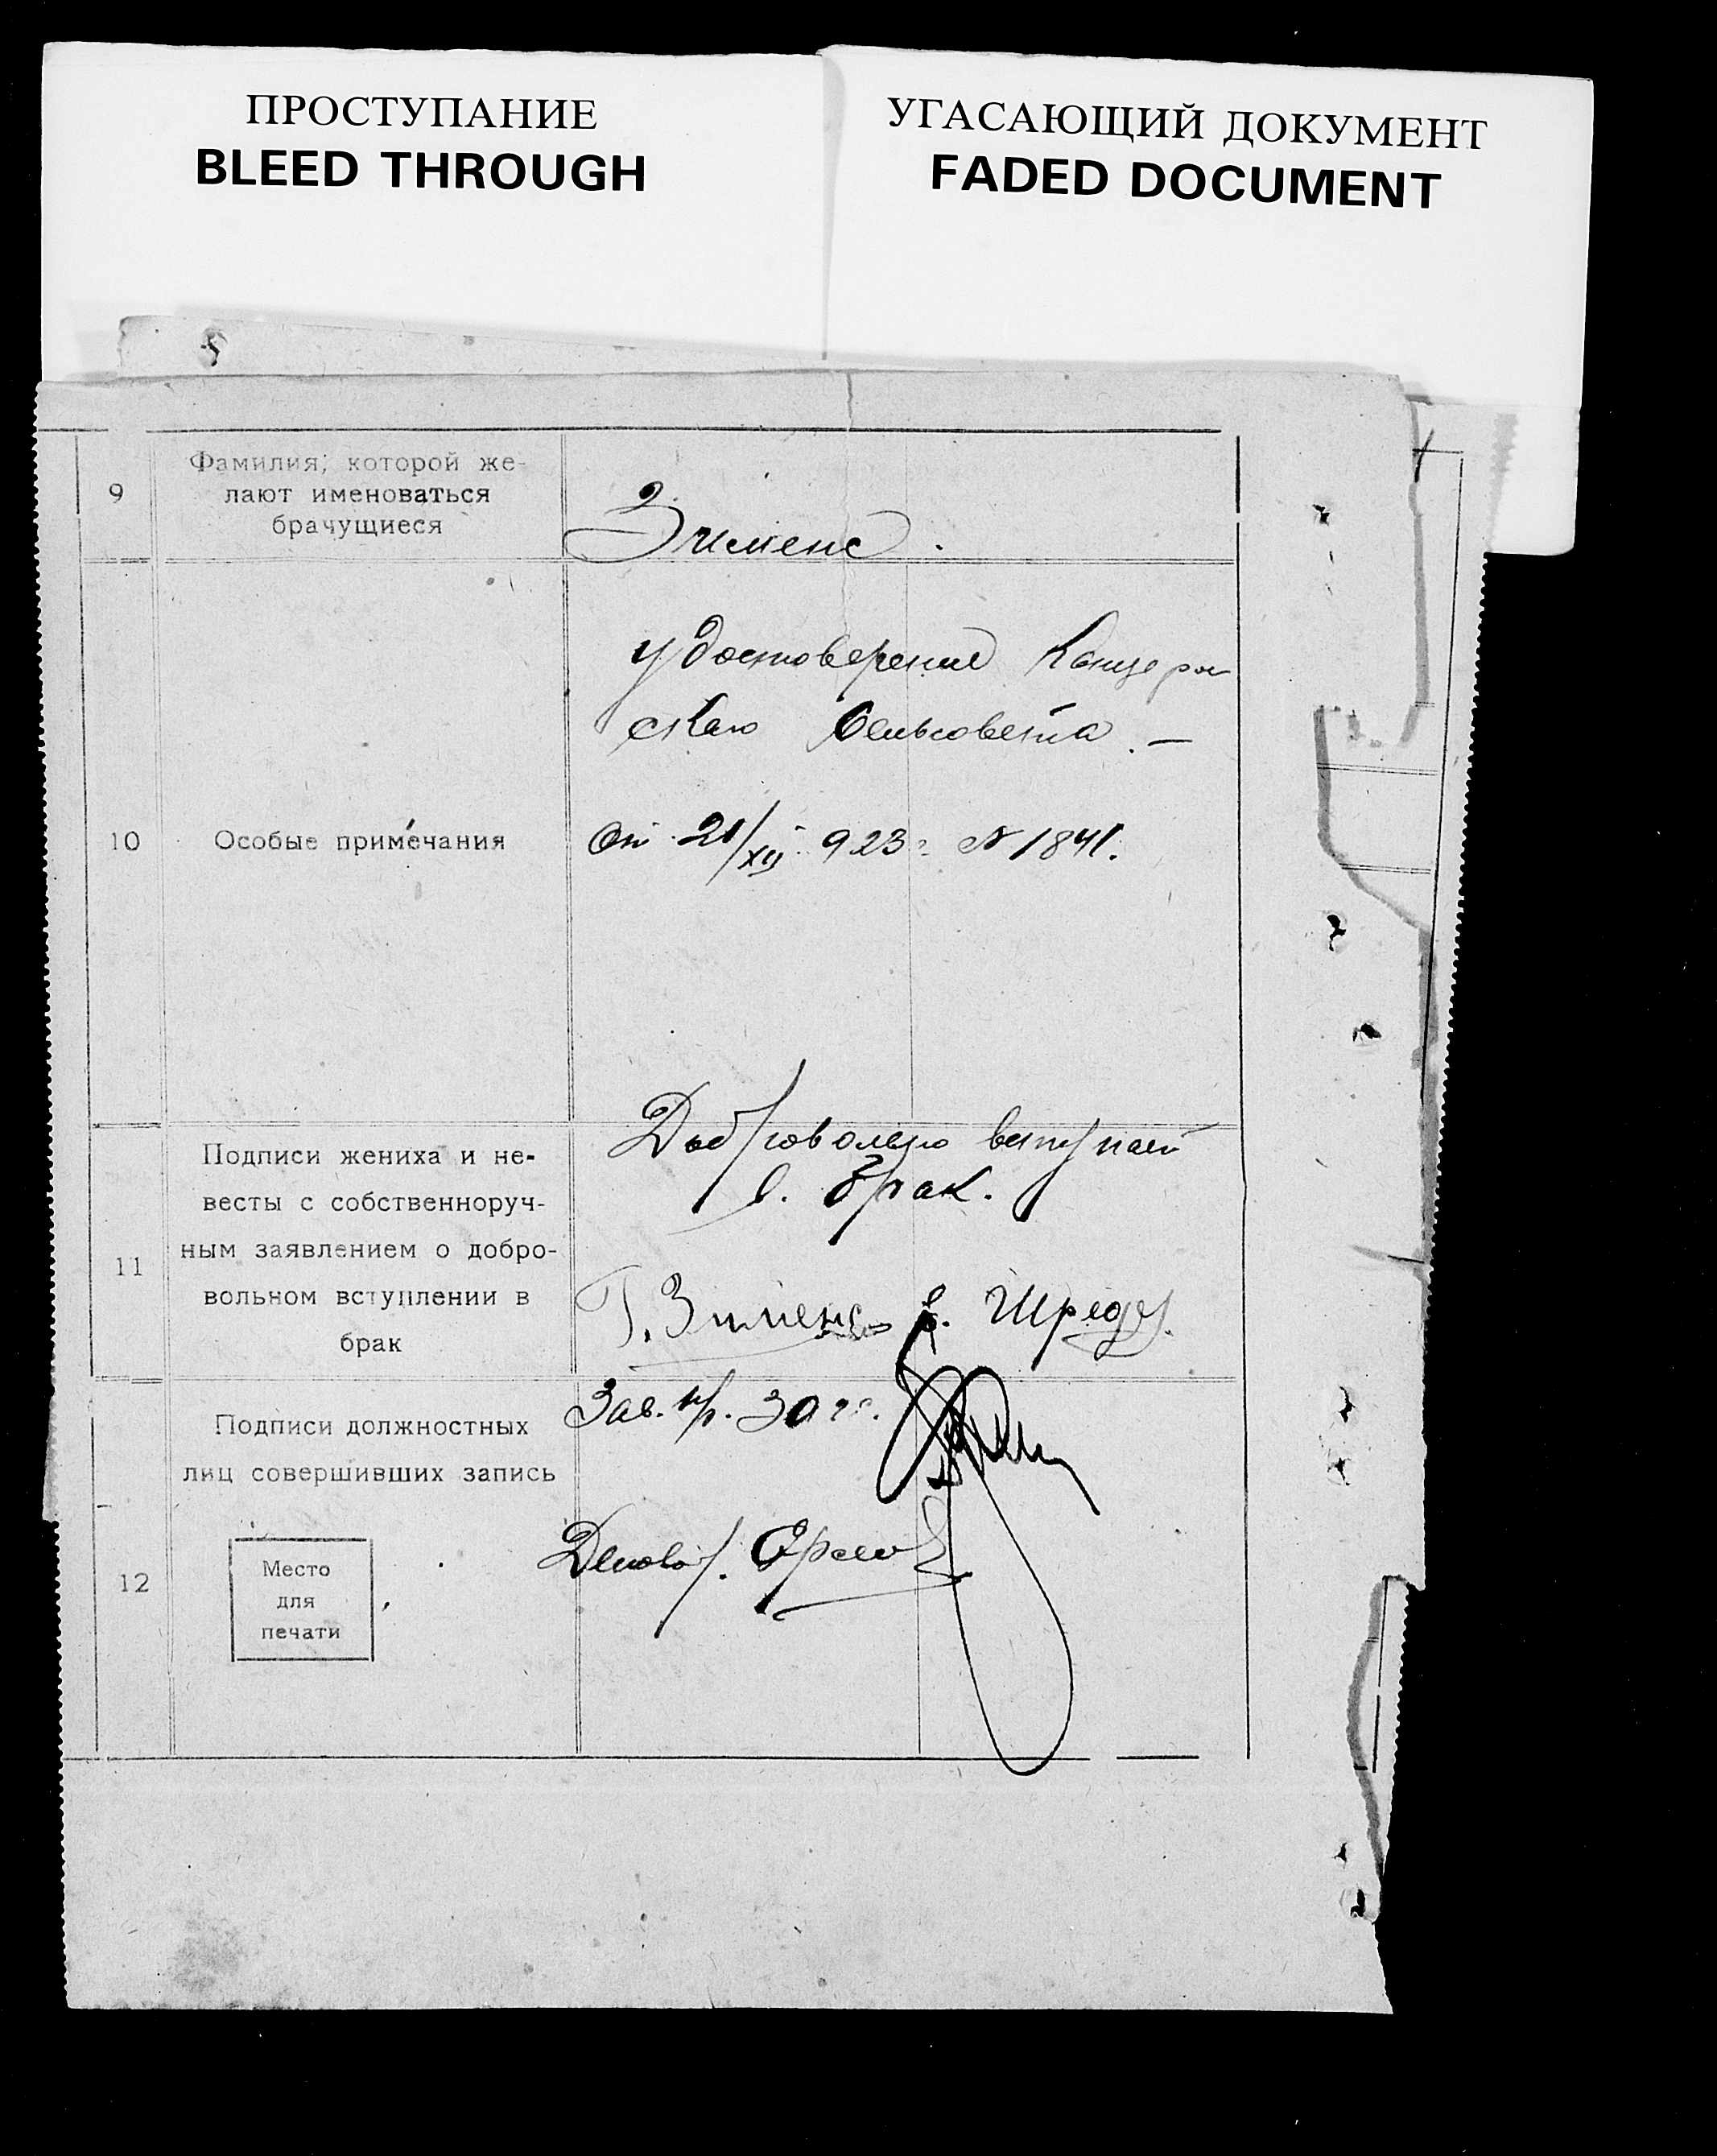 ПРОСТУПАНИЕ
BLEED THROUGH
УГАСАЮЩИЙ ДОКУМЕНТ
FADED DOCUMENT
9
Фамилия, которой же-
лают именоваться
брачущиеся
Зименс.
10
Особые примечания
Удостоверение
ского Сельсовета. —
От 21/XII 923 г. № 1841.
11
Подписи жениха и не-
весты с собственноруч-
ным заявлением о добро-
вольном вступлении в
брак
Добровольно вступаем
в брак.
Г. Зименс Шредер.
12
Подписи должностных
лиц совершивших запись
Зав. п/
Место
для
печати
Деловод.